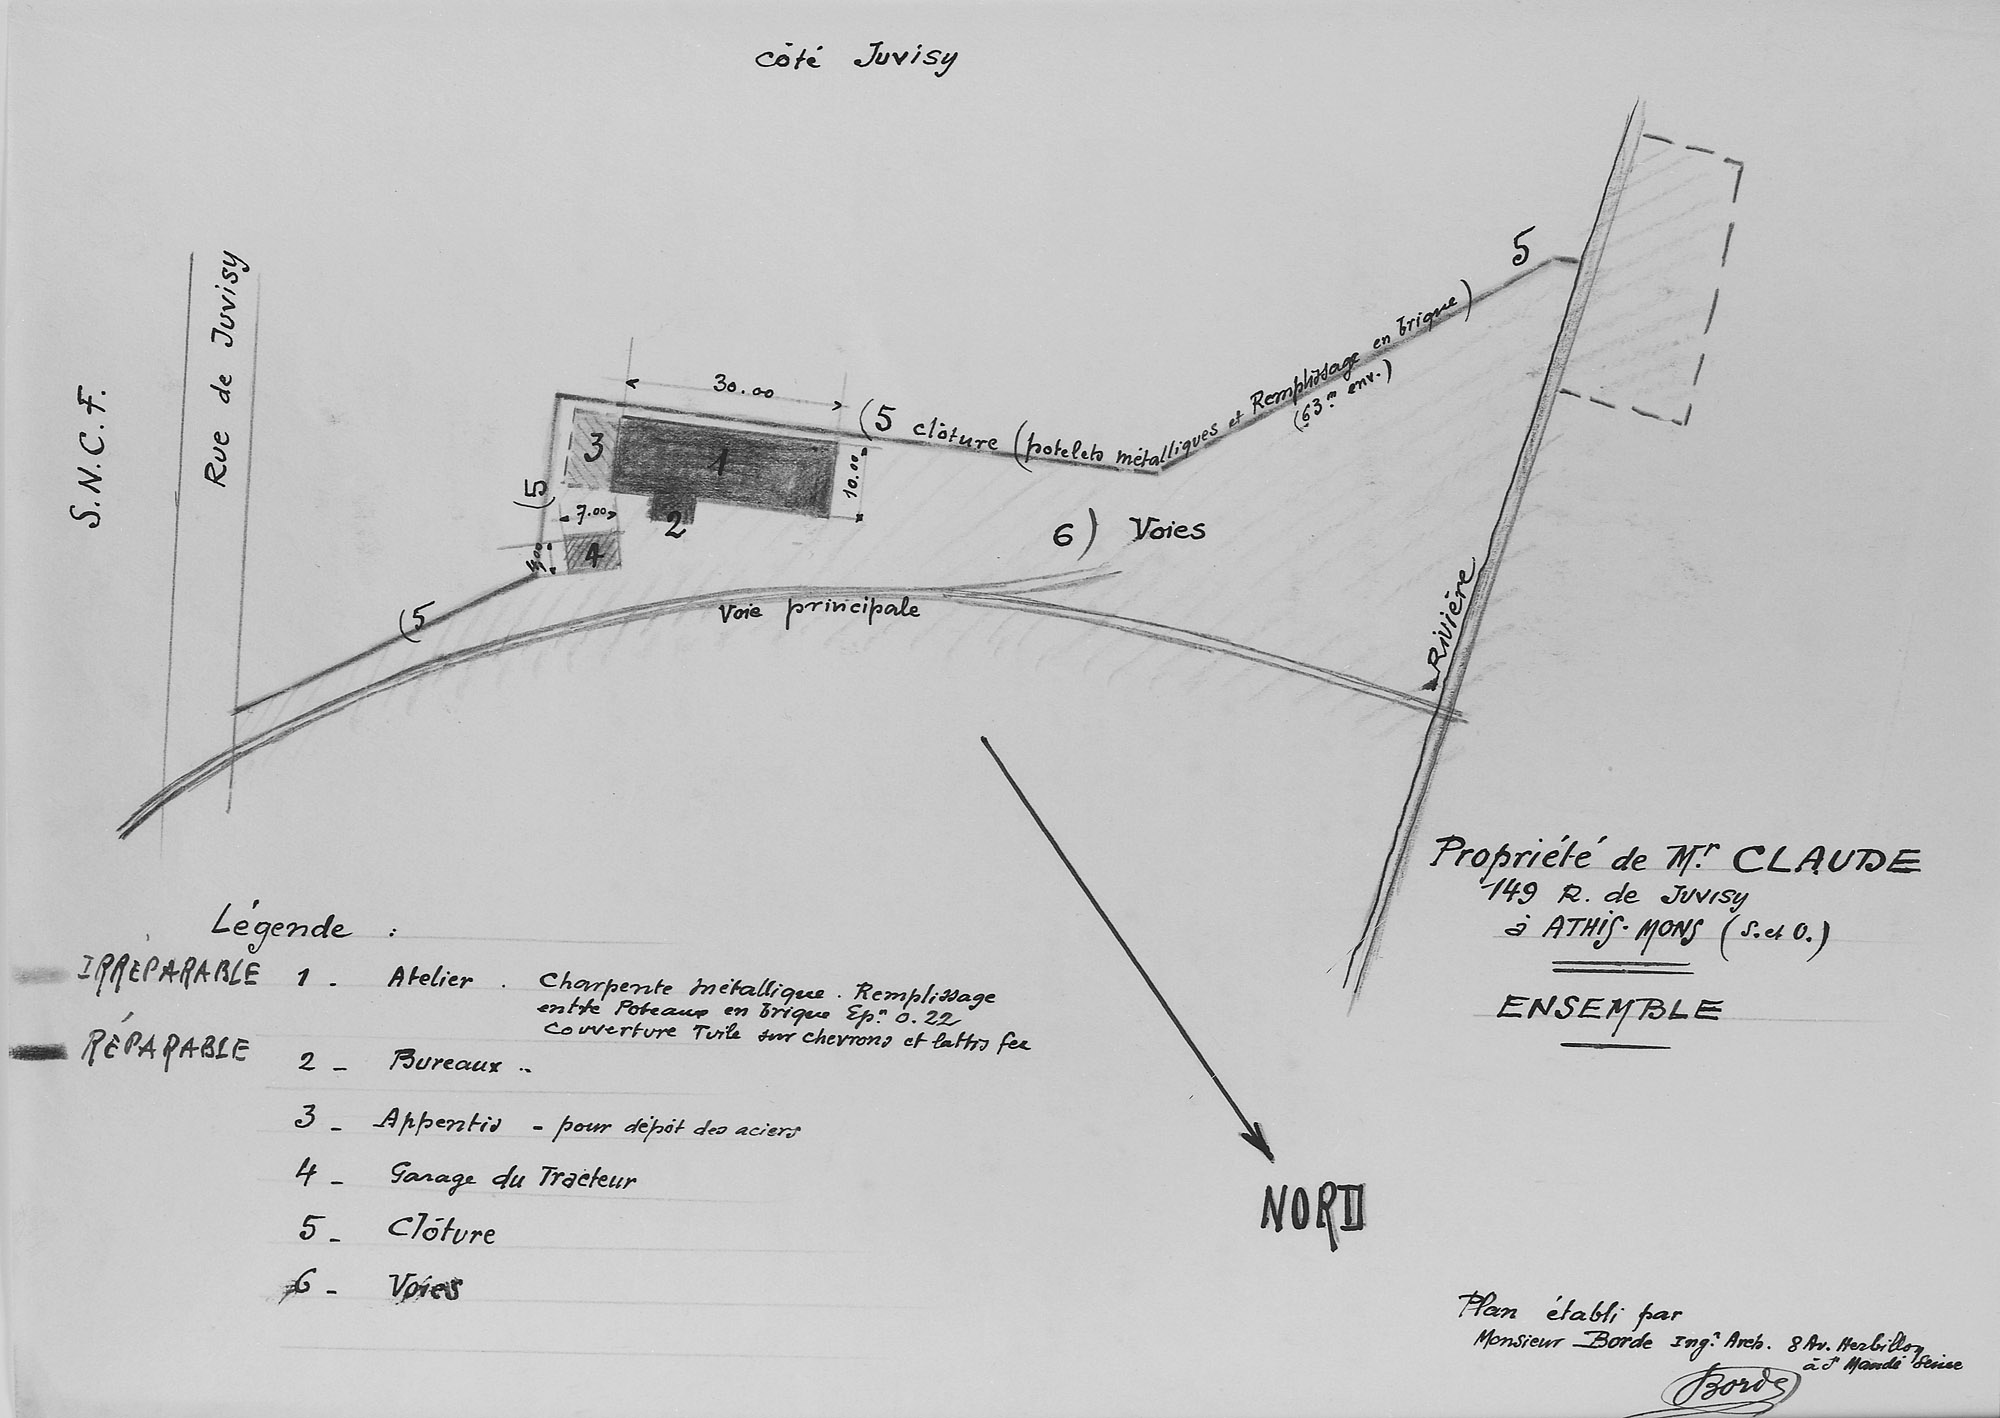 côté Juvisy
S.N.C.F.
Rue de Juvisy
30.00
3
1
10.00
2
7.00
4
4.00
(5
(5
(5 clôture (potelets métalliques et Remplissage en brique)
(63.m env.)
5
6) Voies
Voie principale
Rivière
NORD
Propriété de Mr. CLAUDE
149 R. de Juvisy
à ATHIS-MONS (S. et O.)
ENSEMBLE
Légende :
IRRÉPARABLE
RÉPARABLE
1 - Atelier . Charpente métallique. Remplissage
entre Poteaux en brique Epr. 0.22
Couverture Tuile sur chevrons et lattis fer
2 - Bureaux ..
3 - Appentis - pour dépôt des aciers
4 - Garage du Tracteur
5 - Clôture
6 - Voies
Plan établi par
Monsieur Borde Ingr. Arch. 8 Av. Herbillon
à St Mandé Seine
Borde